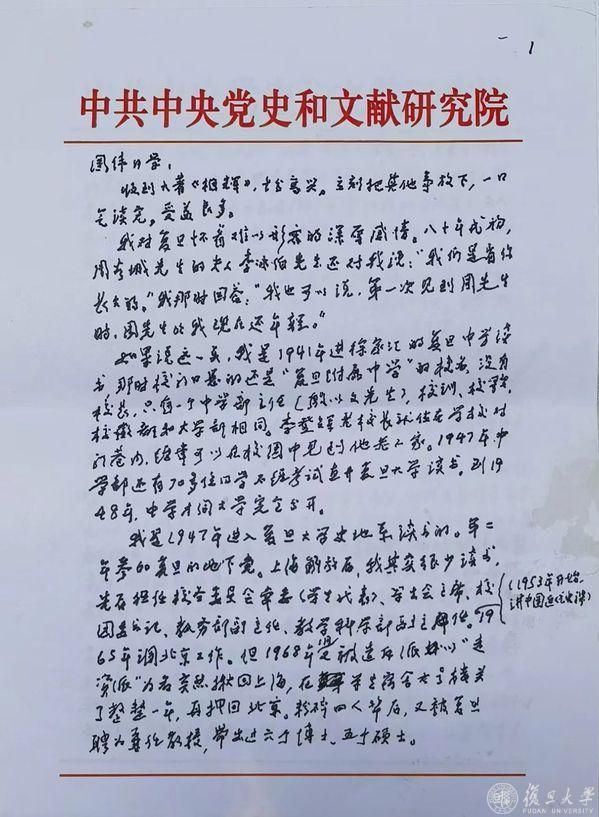 一 1
中共中央党史和文献研究院
国伟同学：
收到大著《相辉》，十分高兴。立刻把其他事放下，一口
气读完。受益良多。
我对复旦怀着难以形容的深厚感情。八十年代初，
周谷城先生的夫人李冰伯先生还对我说：“我们是看你
长大的。”我那时回答：“我也可以说，第一次见到周先生
时，周先生比我现在还年轻。”
如果说远一点，我是1941年进徐家汇的复旦中学读
书，那时校门口悬的还是“复旦附属中学”的校名，没有
校长，只有一个中学部主任（殷以文先生），校训、校歌、
校徽都和大学部相同。李登辉老校长就住在学校对
门巷内，经常可以在校园中见到他老人家。1947年中
学部还有70多位同学不经考试直升复旦大学读书。到19
48年，中学才同大学完全分开。
我是1947年进入复旦大学史地系读书的。第二
年参加复旦的地下党。上海解放后，我其实很少读书，
先后担任校务委员会常委（学生代表）、学生会主席、校
团委书记、教务部副主任、教学科学部副主任。19
（1953年开始
讲中国近代史课）
65年调北京工作。但1968年又被造反派以“走
资派”为名义揪回上海，在学生宿舍六号楼关
了整整一年，再押回北京。粉碎四人帮后，又被复旦
聘为兼任教授，带出过六个博士、五个硕士。
復旦大學
FUDAN UNIVERSITY